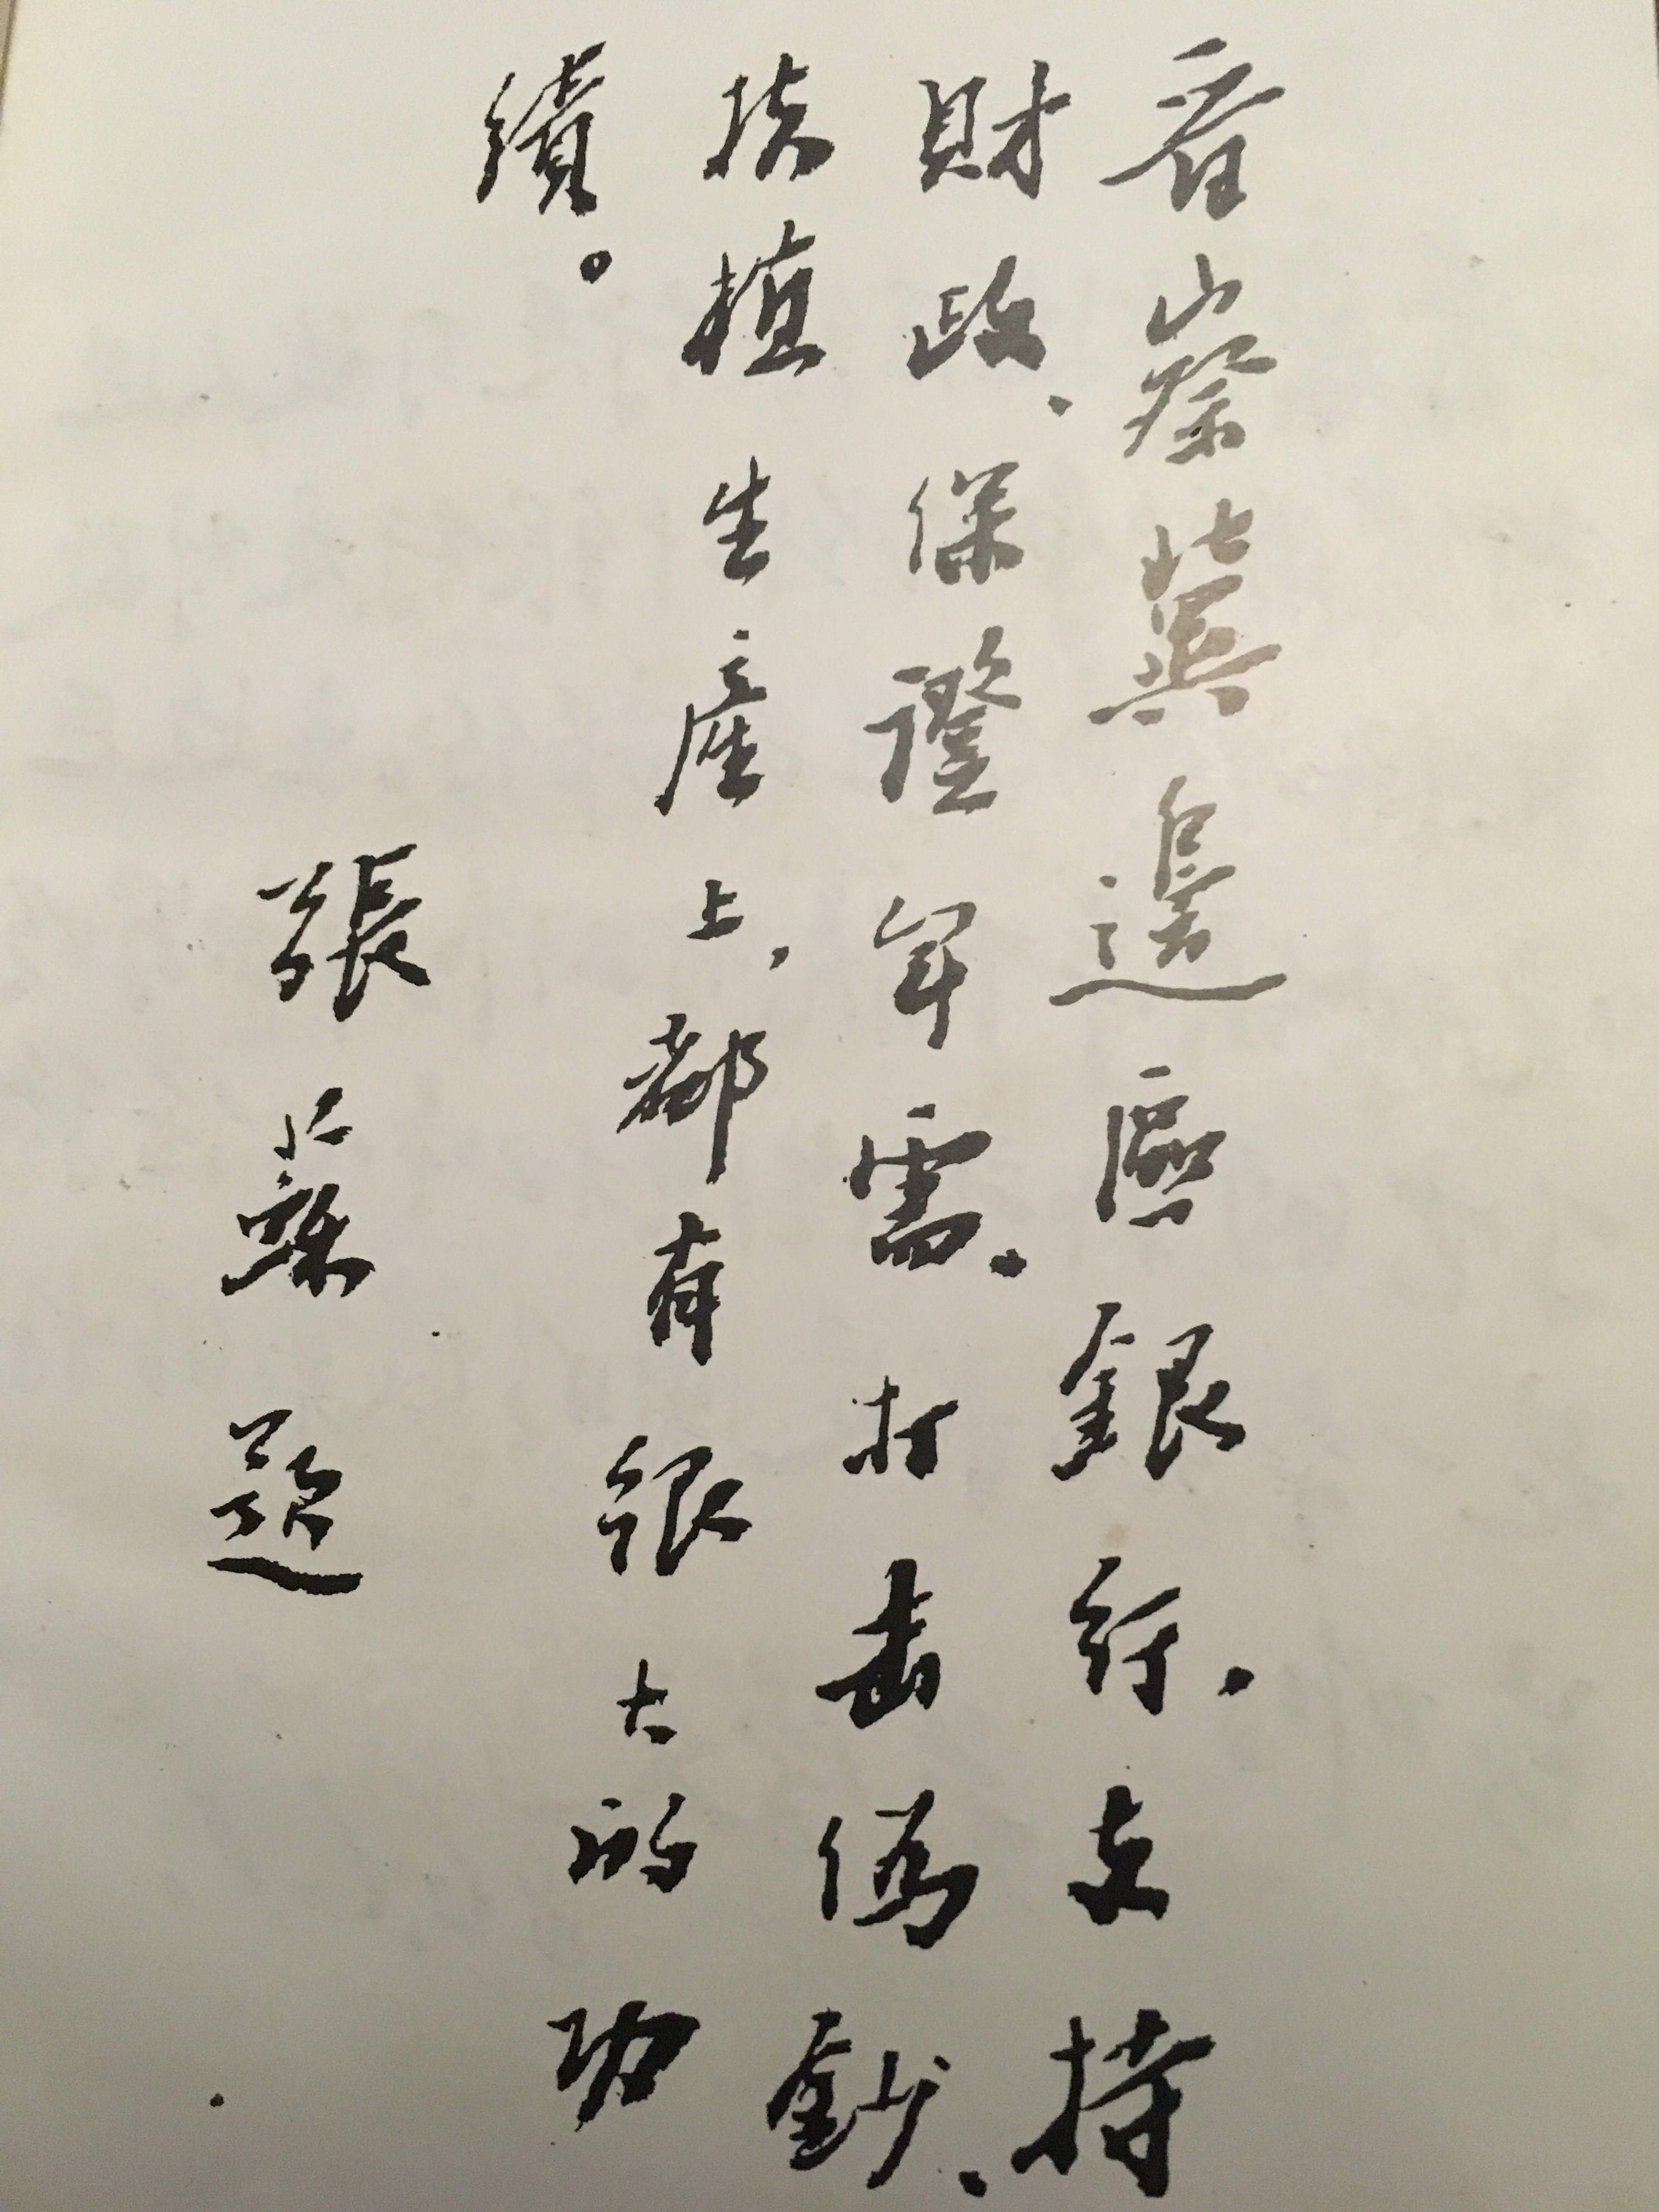 晉察冀邊區銀行，支持
財政、保證軍需、打击偽鈔、
扶植生產上，都有很大的功
績。
張蘇題